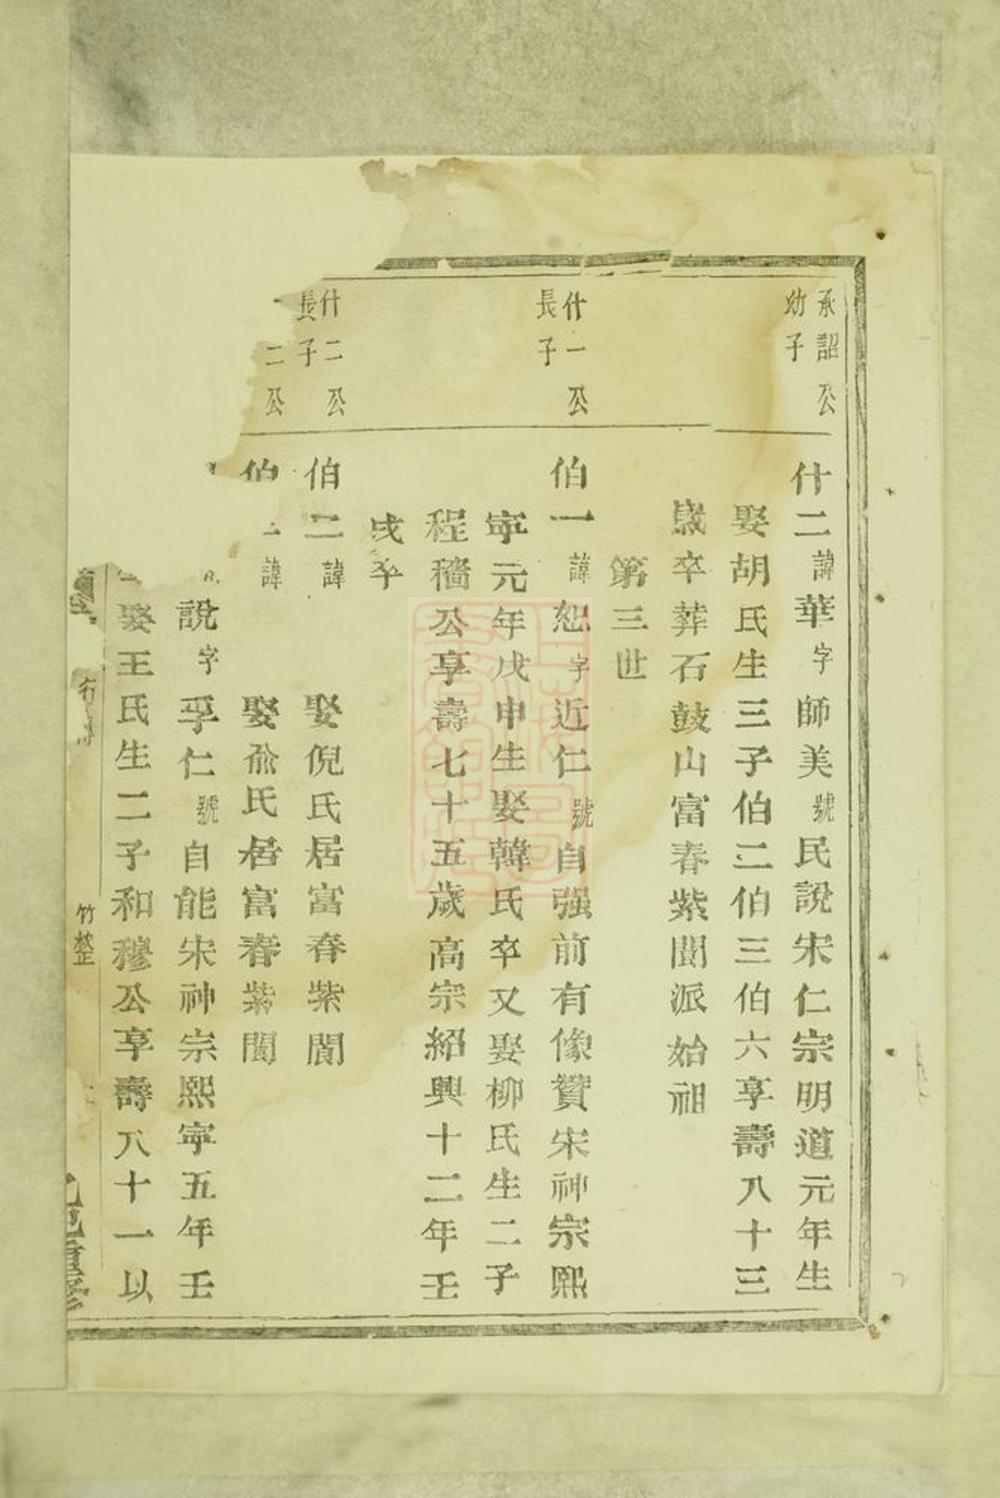 承詔公
幼子
什二諱華字師美號民說宋仁宗明道元年生
娶胡氏生三子伯二伯三伯六享壽八十三
歲卒葬石鼓山富春紫閬派始祖
第三世
什一公
長子
伯一諱恕字近仁號自强前有像贊宋神宗熙
寧元年戊申生娶韓氏卒又娶柳氏生二子
程穡公享壽七十五歲高宗紹興十二年壬
戌卒
什二公
長子
伯二諱 娶倪氏居富春紫閬
二公
伯 諱 娶俞氏居富春紫閬
說字孚仁號自能宋神宗熙寧五年壬
娶王氏生二子和穆公享壽八十一以
竹整
重修